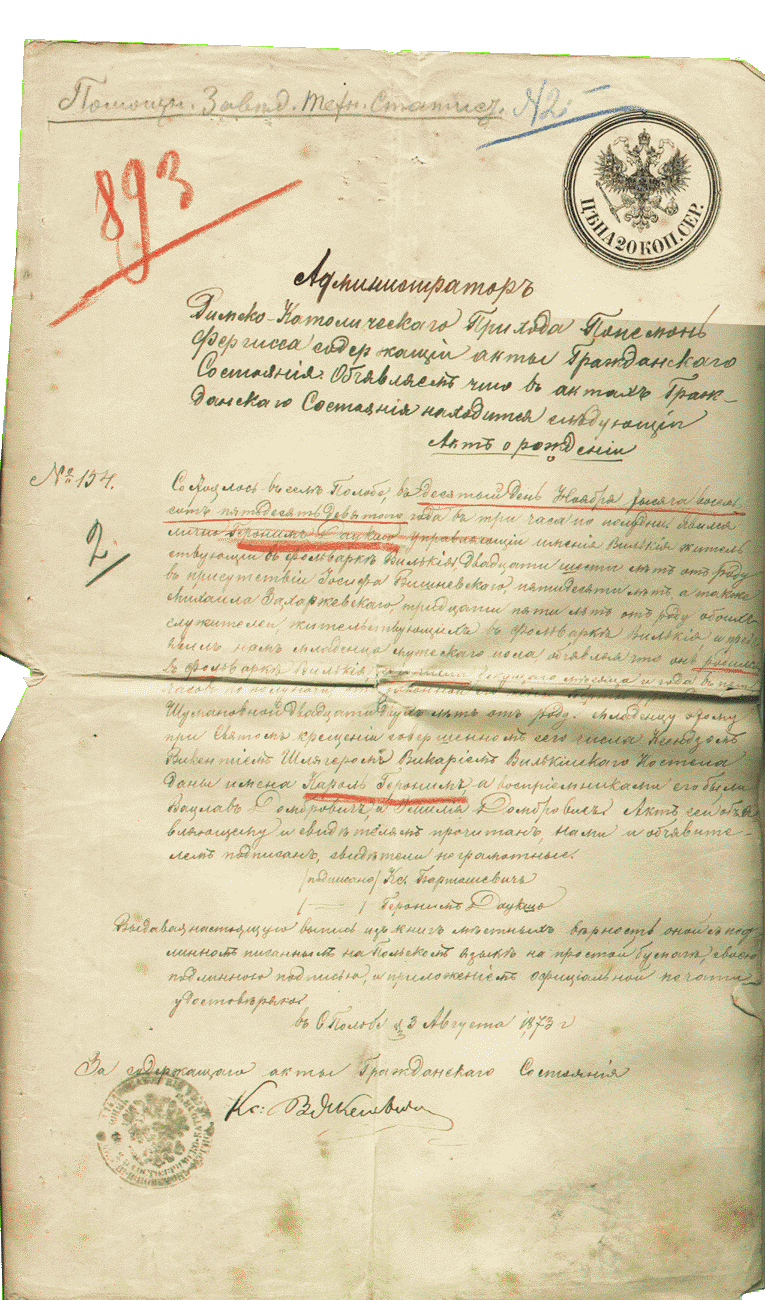 Помощн. Завѣд. Техн. Статист.
№ 2.
893
ЦѢНА 20 КОП. СЕР.
Администраторъ
Римско-Католическаго Прихода Попемонь
Фергисса содержащій акты Гражданскаго
Состоянія. Объявляетъ что въ актахъ Граж-
данскаго Состоянія находится слѣдующій
Актъ о рожденіи
№ 154.
Состоялось въ селѣ Полобе, въ десятый день Ноября тысяча восем
сотъ пятьдесятъ девятого года въ три часа по полудни явился
лично Геронимъ Даукша управляющій имѣнія Вилькія житель
ствующій въ фольваркѣ Вилькія, Двадцати шести лѣтъ отъ роду
въ присутствіи Іосифа Вишневскаго, пятидесяти лѣтъ, а также
Михаила Захаржевскаго тридцати пяти лѣтъ отъ роду обоихъ
2.
служителей, жительствующихъ въ фольваркѣ Вилькія и пред
намъ младенца мужескаго пола объявляя что онъ родился
въ фольваркѣ Вилькія текущаго мѣсяца и года въ
часовъ по полуночи, отъ законной его жены
Шумановной Двадцати двухъ лѣтъ отъ роду. Младенцу этому
при Святомъ крещеніи совершенномъ сего числа Ксендзомъ
Викентіемъ Шлягеромъ Викаріемъ Вилькійскаго Костела
даны имена Кароль Геронимъ, а воспріемниками его были
Вацлавъ Домбровичъ, а Эмилія Домбровичъ. Актъ сей объя
вляющему и свидѣтелямъ прочитанъ, нами и объявите-
лемъ подписанъ, свидѣтели неграмотные.
/подписано/ Кс. Барташевичъ
/ — / Геронимъ Даукша
Выдавая настоящую выпись изъ книгъ мѣстныхъ вѣрность оной съ под
линномъ писаннымъ на Польскомъ языкѣ на простой бумагѣ, своею
подлинною подписью, и приложеніемъ официальной печати
удостовѣряю.
въ С. Полобе 3 Августа 1873 г
За содержащаго акты Гражданскаго Состоянія
Кс: